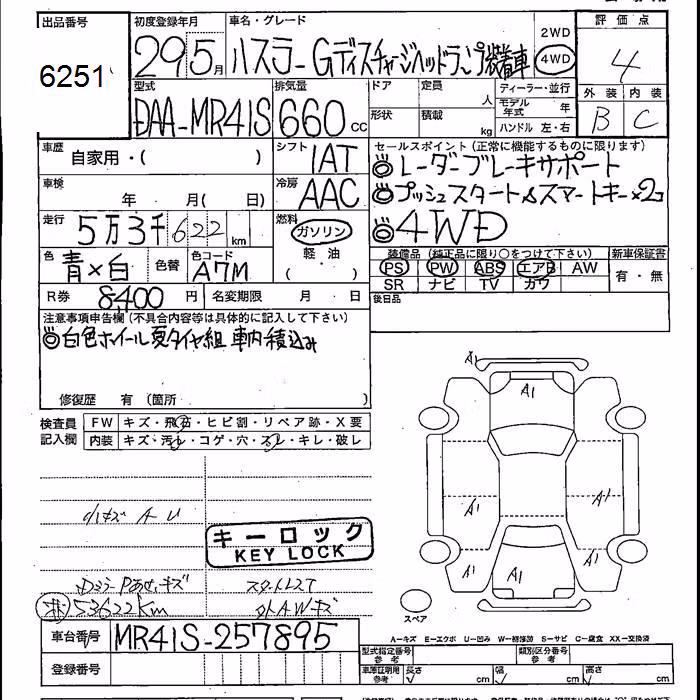 出品番号 初度登録年月 車名・グレード 評価点
6251 29 5月 ハスラー Gディスチャージヘッドランプ装着車 2WD 4WD 4
型式 排気量 ドア 定員 人 ディーラー・並行 外装 内装
DAA-MR41S 660 CC 形状 積載 kg モデル年式 年 B C
ハンドル 左・右
車歴 自家用・( ) シフト 1AT セールスポイント (正常に機能するものに限ります)
◎レーダーブレーキサポート
車検 年 月( 日) 冷房 AAC ◎プッシュスタート&スマートキー×2コ
走行 5万3千622km 燃料 ガソリン ◎4WD
軽・油
( )
色 青×白 色替 色コード A7M 装備品 (純正品に限り○をつけて下さい) 新車保証書
PS PW ABS エアB AW 有・無
SR ナビ TV カワ
R券 8,400円 名変期限 月 日 後日品
注意事項申告欄 (不具合内容等は具体的に記入して下さい)
◎白色ホイール夏タイヤ組 車内積込み
修復歴 有 (箇所 )
検査員 FW キズ・飛石・ヒビ割・リペア跡・X要
記入欄 内装 キズ・汚レ・コゲ・穴・スレ・キレ・破レ
A1
A1
A1 A1
A1 A1 A1
小キズ A U
キーロック
KEY LOCK
キズ
53622km
スペア
A―キズ E―エクボ U―凹み W―補修跡 S―サビ C―腐食 XX―交換済
車台番号 MR41S-257895 型式指定番号 参考 類別区分番号 参考
登録番号 車庫証明用 参考 長さ cm 幅 cm 高さ cm